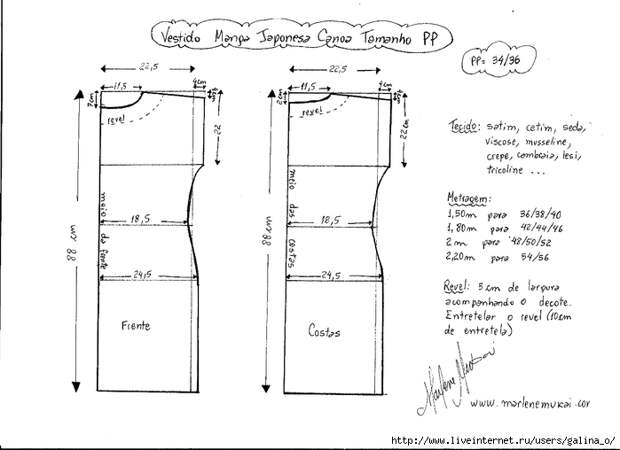 Vestido Manga Japonesa Canoa Tamanho PP
PP= 34/36
22,5
4cm
11,5
2cm
revel
22
meio da frente
18,5
88 cm
24,5
Frente
22,5
4cm
11,5
2cm
revel
22 cm
meio das costas
18,5
88 cm
24,5
Costas
Tecido: satim, cetim, seda,
viscose, musseline,
crepe, cambraia, lesi,
tricoline ...
Metragem:
1,50m para 36/38/40
1,80m para 42/44/46
2m para 48/50/52
2,20m para 54/56
Revel: 5cm de largura
acompanhando o decote.
Entretelar o revel (10cm
de entretela)
Marlene Mukai
www.marlenemukai.com
http://www.liveinternet.ru/users/galina_o/